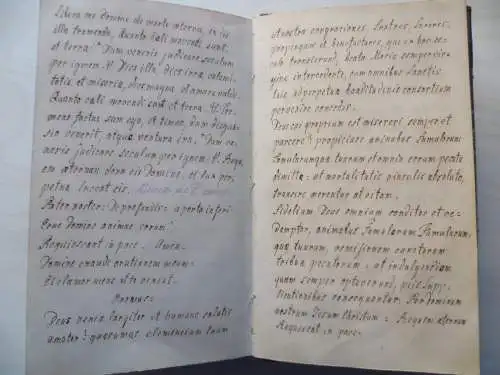 Libera me Domine de morte aeterna, in die
illa tremenda, Quando Cæli movendi sunt,
et terra: Dum veneris judicare seculum
per ignem. V. Dies illa, dies irae, calami-
tatis et miseria, dies magna et amara valde.
Quando cæli movendi sunt et terra. V. Tre-
mens factus sum ego, et timeo, dum discus-
sio venerit, atque ventura ira. Dum ve-
neris judicare seculum per ignem. V. Requi-
em æternam dona eis Domine, et lux per-
petua luceat eis.
Pater noster. De profundis a porta inferi
Erue Domine animas eorum.
Requiescant in pace. Amen.
Domine exaudi orationem meam.
Et clamor meus ad te veniat.
Oremus.
Deus veniæ largitor et humanæ salutis
amator: quæsumus clementiam tuam
nostræ congregationis, fratres, sorores,
propinquos et benefactores, qui ex hoc sæ-
culo transierunt, Beata Maria semper Virgi-
ne intercedente, cum omnibus Sanctis
tuis ad perpetuæ beatitudinis consortium
pervenire concedas.
Deus cui proprium est misereri semper et
parcere propitiare animabus famulorum
famularumque tuarum et omnia eorum peccata
dimitte: ut mortalitatis vinculis absolutæ,
transire mereantur ad vitam.
Fidelium Deus omnium conditor et re-
demptor, animabus famulorum famularum,
que tuarum, remissionem cunctorum
tribue peccatorum, ut indulgentiam
quam semper optaverunt, piis supp-
licationibus consequantur. Per Dominum
nostrum Jesum Christum. Requiem æternam
Requiescant in pace.